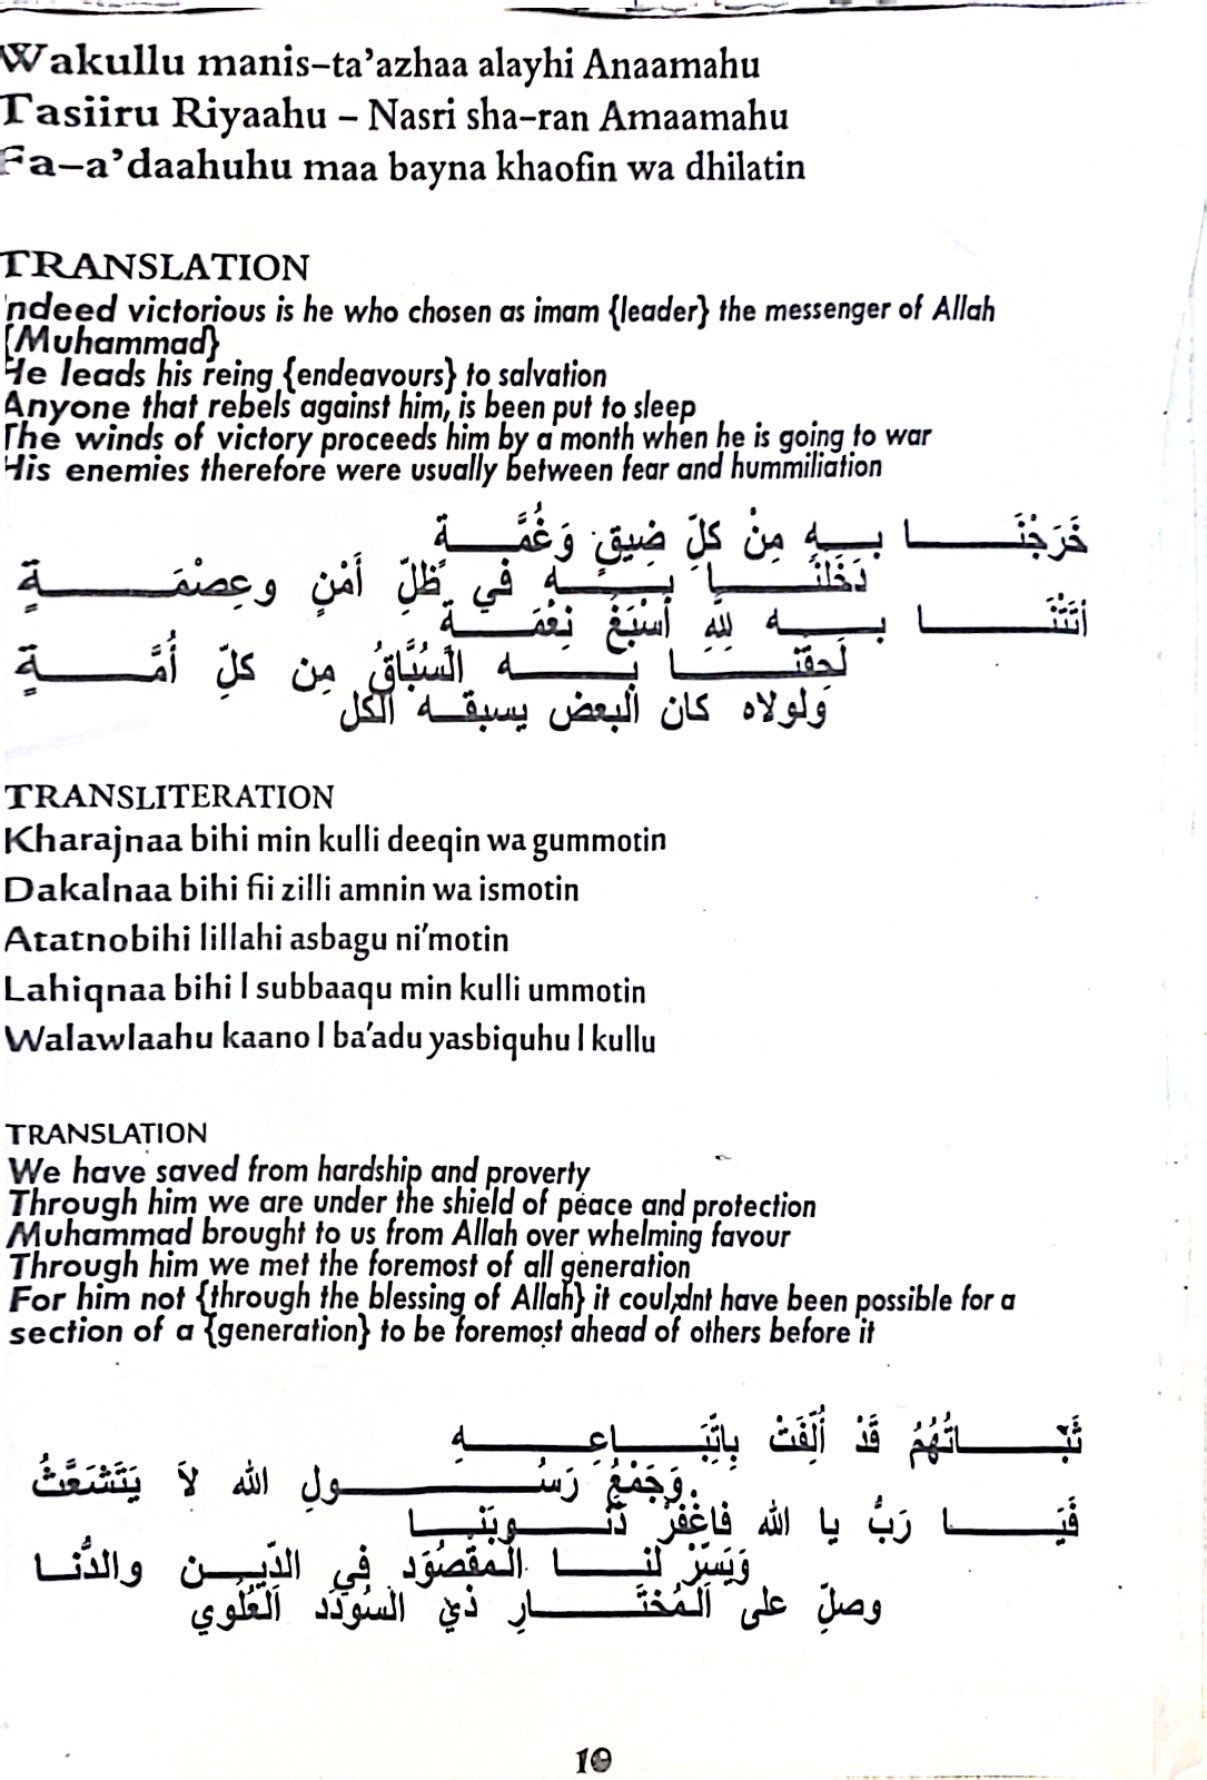 Wakullu manis–ta’azhaa alayhi Anaamahu
Tasiiru Riyaahu – Nasri sha–ran Amaamahu
Fa–a’daahuhu maa bayna khaofin wa dhilatin
TRANSLATION
Indeed victorious is he who chosen as imam {leader} the messenger of Allah
{Muhammad}
He leads his reing {endeavours} to salvation
Anyone that rebels against him, is been put to sleep
The winds of victory proceeds him by a month when he is going to war
His enemies therefore were usually between fear and hummiliation
خَرَجْنَا بِهِ مِنْ كلِّ ضِيقٍ وَغُمَّةٍ
دَخَلْنَا بِهِ في ظلِّ أَمْنٍ وعِصْمَةٍ
أتَتْنَا بِهِ لِلَّهِ أسْبَغُ نِعْمَةٍ
لَحِقْنَا بِهِ السُبَّاقُ مِن كلِّ أُمَّةٍ
وَلولاه كان البعض يسبقه الكل
TRANSLITERATION
Kharajnaa bihi min kulli deeqin wa gummotin
Dakalnaa bihi fii zilli amnin wa ismotin
Atatnobihi lillahi asbagu ni’motin
Lahiqnaa bihi l subbaaqu min kulli ummotin
Walawlaahu kaano l ba’adu yasbiquhu l kullu
TRANSLATION
We have saved from hardship and proverty
Through him we are under the shield of peace and protection
Muhammad brought to us from Allah over whelming favour
Through him we met the foremost of all generation
For him not {through the blessing of Allah} it could;nt have been possible for a
section of a {generation} to be foremost ahead of others before it
ثَبَاتُهُمُ قَدْ أُلِّفَتْ بِاتِّبَاعِهِ
وَجَمْعُ رَسُولِ الله لاَ يَتَشَعَّثُ
فَيَا رَبُّ يا الله فاغْفِرْ ذُنُوبَنا
وَيَسِّرْ لنا المَقْصُودَ في الدِّين والدُّنا
وصلِّ على المُخْتَارِ ذي السُودَد العُلْوي
10